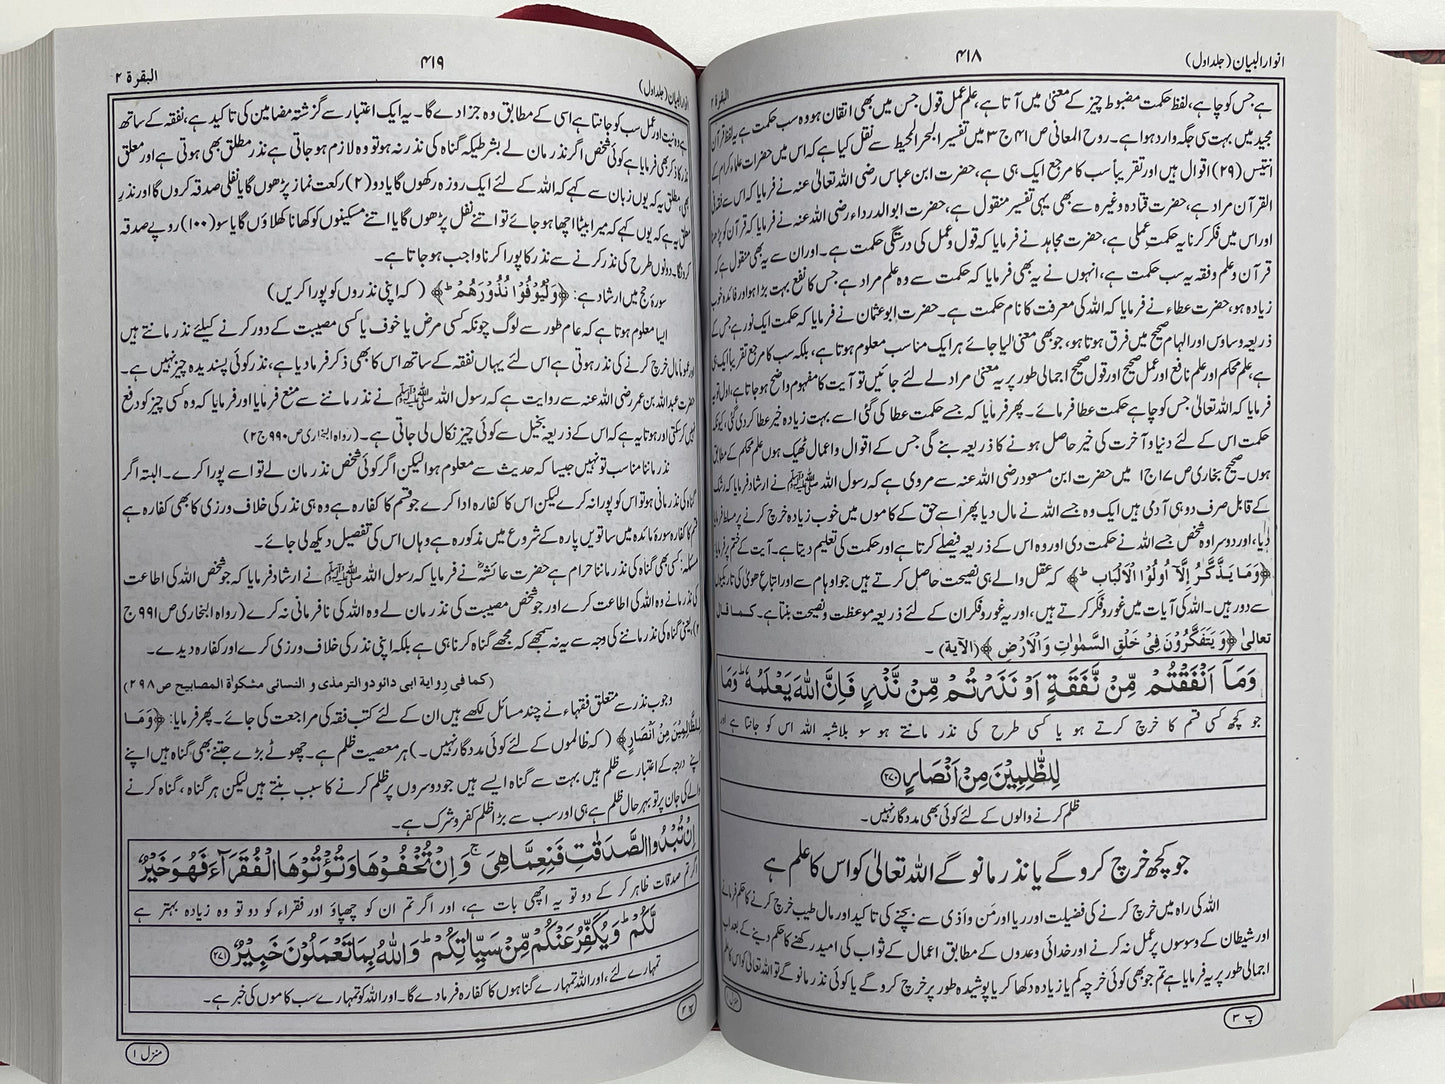 انوار البیان (جلد اول)
۴۱۸
البقرة ۲
ہے جس کو چاہے، لفظ حکمت مضبوط چیز کے معنیٰ میں آتا ہے، علم عمل قول جس میں بھی اتقان ہو وہ سب حکمت ہے یہ لفظ قرآن
مجید میں بہت سی جگہ وارد ہوا ہے۔ روح المعانی ص ۴۱ ج ۳ میں تفسیر البحر المحیط سے نقل کیا ہے کہ اس میں حضرات علماء کرام کے
انتیس (۲۹) اقوال ہیں اور تقریباً سب کا مرجع ایک ہی ہے، حضرت ابن عباس رضی اللہ تعالیٰ عنہ نے فرمایا کہ اس سے فقہ فی
القرآن مراد ہے، حضرت قتادہ وغیرہ سے بھی یہی تفسیر منقول ہے، حضرت ابوالدرداء رضی اللہ عنہ نے فرمایا کہ قرآن کو پڑھنا
اور اس میں فکر کرنا یہ حکمت عملی ہے، حضرت مجاہد نے فرمایا کہ قول و عمل کی درستگی حکمت ہے۔ اور ان سے یہ بھی منقول ہے کہ
قرآن و علم و فقہ یہ سب حکمت ہے، انہوں نے یہ بھی فرمایا کہ حکمت سے وہ علم مراد ہے جس کا نفع بہت بڑا ہو اور فائدہ خوب
زیادہ ہو، حضرت عطاء نے فرمایا کہ اللہ کی معرفت کا نام حکمت ہے۔ حضرت ابو عثمان نے فرمایا کہ حکمت ایک نور ہے جس کے
ذریعہ وساوس اور الہام صحیح میں فرق ہوتا ہو، جو بھی معنیٰ لیا جائے ہر ایک مناسب معلوم ہوتا ہے، بلکہ سب کا مرجع تقریباً ایک ہی
ہے، علم محکم اور علم نافع اور عمل صحیح اور قول صحیح اجمالی طور پر یہ معنی مراد لے لئے جائیں تو آیت کا مفہوم واضح ہو جاتا ہے، اول تو یہ
فرمایا کہ اللہ تعالیٰ جس کو چاہے حکمت عطا فرمائے۔ پھر فرمایا کہ جسے حکمت عطا کی گئی اسے بہت زیادہ خیر عطا کر دی گئی، کیونکہ
حکمت اس کے لئے دنیا و آخرت کی خیر حاصل ہونے کا ذریعہ بنے گی جس کے اقوال و اعمال ٹھیک ہوں علم محکم کے مطابق
ہوں۔ صحیح بخاری ص ۱۷ ج ۱ میں حضرت ابن مسعود رضی اللہ عنہ سے مروی ہے کہ رسول اللہ ﷺ نے ارشاد فرمایا کہ رشک
کے قابل صرف دو ہی آدمی ہیں ایک وہ جسے اللہ نے مال دیا پھر اسے حق کے کاموں میں خوب زیادہ خرچ کرنے پر مسلط فرما
دیا، اور دوسرا وہ شخص جسے اللہ نے حکمت دی اور وہ اس کے ذریعہ فیصلے کرتا ہے اور حکمت کی تعلیم دیتا ہے۔ آیت کے ختم پر فرمایا
﴿وَمَا يَذَّكَّرُ إِلَّآ أُولُوا الْاَلْبَابِ﴾ کہ عقل والے ہی نصیحت حاصل کرتے ہیں جو اوہام سے اور اتباع ھویٰ کی تاریکیوں
سے دور ہیں۔ اللہ کی آیات میں غور و فکر کرتے ہیں، اور یہ غور و فکر ان کے لئے ذریعہ موعظت و نصیحت بنتا ہے۔ کما قال
تعالیٰ ﴿وَيَتَفَكَّرُوْنَ فِيْ خَلْقِ السَّمٰوٰتِ وَالْاَرْضِ﴾ (الآية)۔
وَمَآ اَنْفَقْتُمْ مِّنْ نَّفَقَةٍ اَوْ نَذَرْتُمْ مِّنْ نَّذْرٍ فَاِنَّ اللّٰهَ يَعْلَمُهٗ ؕ وَمَا
جو کچھ کسی قسم کا خرچ کرتے ہو یا کسی طرح کی نذر مانتے ہو سو بلاشبہ اللہ اس کو جانتا ہے اور
لِلظّٰلِمِيْنَ مِنْ اَنْصَارٍ ۝۲۷۰
ظلم کرنے والوں کے لئے کوئی بھی مددگار نہیں۔
جو کچھ خرچ کرو گے یا نذر مانو گے اللہ تعالیٰ کو اس کا علم ہے
اللہ کی راہ میں خرچ کرنے کی فضیلت اور ریا اور من و اذی سے بچنے کی تاکید اور مال طیب خرچ کرنے کا حکم فرمانے
اور شیطان کے وسوسوں پر عمل نہ کرنے اور خدائی وعدوں کے مطابق اعمال کے ثواب کی امید رکھنے کا حکم دینے کے بعد اب
اجمالی طور پر یہ فرمایا ہے تم جو بھی کوئی خرچہ کم یا زیادہ دکھا کر یا پوشیدہ طور پر خرچ کرو گے یا کوئی نذر مانو گے تو اللہ تعالیٰ کو اس کا علم
منزل ۱
پ ۳
انوار البیان (جلد اول)
۴۱۹
البقرة ۲
ہے وہ نیت اور عمل سب کو جانتا ہے اسی کے مطابق وہ جزا دے گا۔ یہ ایک اعتبار سے گزشتہ مضامین کی تاکید ہے، نفقہ کے ساتھ
نذر کا ذکر بھی فرمایا ہے کوئی شخص اگر نذر مان لے بشرطیکہ گناہ کی نذر نہ ہو تو وہ لازم ہو جاتی ہے نذر مطلق بھی ہوتی ہے اور معلق
بھی، مطلق یہ کہ یوں زبان سے کہے کہ اللہ کے لئے ایک روزہ رکھوں گا یا دو (۲) رکعت نماز پڑھوں گا یا نفلی صدقہ کروں گا اور نذر
معلق یہ ہے کہ یوں کہے کہ میرا بیٹا اچھا ہو جائے تو اتنے نفل پڑھوں گا یا اتنے مسکینوں کو کھانا کھلاؤں گا یا سو (۱۰۰) روپے صدقہ
کروں گا۔ دونوں طرح کی نذر کرنے سے نذر کا پورا کرنا واجب ہو جاتا ہے۔
سورۂ حج میں ارشاد ہے: ﴿وَلْيُوْفُوْا نُذُوْرَهُمْ﴾ (کہ اپنی نذروں کو پورا کریں)
ایسا معلوم ہوتا ہے کہ عام طور سے لوگ چونکہ کسی مرض یا خوف یا کسی مصیبت کے دور کرنے کیلئے نذر مانتے ہیں
اور عموماً مال خرچ کرنے کی نذر ہوتی ہے اس لئے یہاں نفقہ کے ساتھ اس کا بھی ذکر فرما دیا ہے، نذر کوئی پسندیدہ چیز نہیں ہے۔
حضرت عبداللہ بن عمر رضی اللہ عنہ سے روایت ہے کہ رسول اللہ ﷺ نے نذر ماننے سے منع فرمایا اور فرمایا کہ وہ کسی چیز کو دفع
نہیں کر سکتی اور ہوتا یہ ہے کہ اس کے ذریعہ بخیل سے کوئی چیز نکال لی جاتی ہے۔ (رواہ البخاری ص ۹۹۰ ج ۲)
نذر ماننا مناسب تو نہیں جیسا کہ حدیث سے معلوم ہوا لیکن اگر کوئی شخص نذر مان لے تو اسے پورا کرے۔ البتہ اگر
گناہ کی نذر مانی ہو تو اس کو پورا نہ کرے لیکن اس کا کفارہ ادا کرے جو قسم کا کفارہ ہے وہ ہی نذر کی خلاف ورزی کا بھی کفارہ ہے
قسم کا کفارہ سورۂ مائدہ میں ساتویں پارہ کے شروع میں مذکورہ ہے وہاں اس کی تفصیل دیکھ لی جائے۔
مسئلہ: کسی بھی گناہ کی نذر ماننا حرام ہے حضرت عائشہؓ نے فرمایا کہ رسول اللہ ﷺ نے ارشاد فرمایا کہ جو شخص اللہ کی اطاعت
کی نذر مانے وہ اللہ کی اطاعت کرے اور جو شخص مصیبت کی نذر مان لے وہ اللہ کی نافرمانی نہ کرے (رواہ البخاری ص ۹۹۱ ج
۲) یعنی گناہ کی نذر ماننے کی وجہ سے یہ نہ سمجھے کہ مجھے گناہ کرنا ہی ہے بلکہ اپنی نذر کی خلاف ورزی کرے اور کفارہ دیدے۔
(كما في رواية ابي داؤد والترمذي و النسائي مشكوٰة المصابيح ص ۲۹۸)
وجوب نذر سے متعلق فقہاء نے چند مسائل لکھے ہیں ان کے لئے کتب فقہ کی مراجعت کی جائے۔ پھر فرمایا: ﴿وَمَا
لِلظّٰلِمِيْنَ مِنْ اَنْصَارٍ﴾ (کہ ظالموں کے لئے کوئی مددگار نہیں۔) ہر معصیت ظلم ہے۔ چھوٹے بڑے جتنے بھی گناہ ہیں اپنے
اپنے درجہ کے اعتبار سے ظلم ہیں بہت سے گناہ ایسے ہیں جو دوسروں پر ظلم کرنے کا سبب بنتے ہیں لیکن ہر گناہ، گناہ کرنے
والے کی جان پر تو بہر حال ظلم ہے ہی اور سب سے بڑا ظلم کفر و شرک ہے۔
اِنْ تُبْدُوا الصَّدَقٰتِ فَنِعِمَّا هِيَ ۚ وَاِنْ تُخْفُوْهَا وَتُؤْتُوْهَا الْفُقَرَآءَ فَهُوَ خَيْرٌ
اگر تم صدقات ظاہر کر کے دو تو یہ اچھی بات ہے، اور اگر تم ان کو چھپاؤ اور فقراء کو دو تو وہ زیادہ بہتر ہے
لَّكُمْ ؕ وَيُكَفِّرُ عَنْكُمْ مِّنْ سَيِّاٰتِكُمْ ؕ وَاللّٰهُ بِمَا تَعْمَلُوْنَ خَبِيْرٌ ۝۲۷۱
تمہارے لئے، اور اللہ تمہارے گناہوں کا کفارہ فرما دے گا۔ اور اللہ کو تمہارے سب کاموں کی خبر ہے۔
پ ۳
منزل ۱